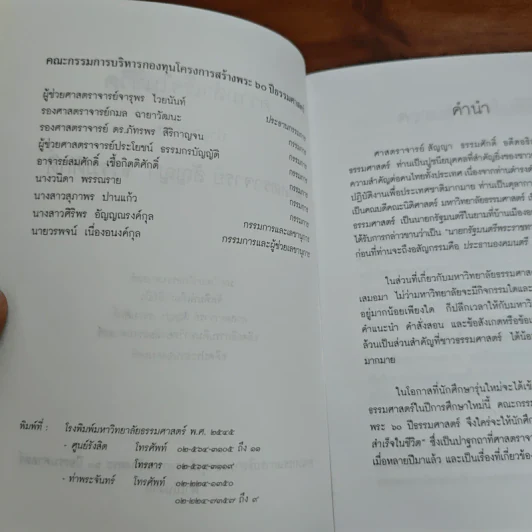 คณะกรรมการบริหารกองทุนโครงการสร้างพระ ๖๐ ปีธรรมศาสตร์
ผู้ช่วยศาสตราจารย์จารุพร ไวยนันท์ ประธานกรรมการ
รองศาสตราจารย์กมล ฉายาวัฒนะ กรรมการ
รองศาสตราจารย์ ดร.ภัทรพร สิริกาญจน กรรมการ
ผู้ช่วยศาสตราจารย์ประโยชน์ ธรรมกรบัญญัติ กรรมการ
อาจารย์สมศักดิ์ เชื้อกิตติศักดิ์ กรรมการ
นางวนิดา พรรณราย กรรมการ
นางสาวสุภาพร ปานแก้ว กรรมการ
นางสาวศิริพร อัญญณรงค์กุล กรรมการและเลขานุการ
นายวรพจน์ เนื่องอนงค์กุล กรรมการและผู้ช่วยเลขานุการ
พิมพ์ที่ : โรงพิมพ์มหาวิทยาลัยธรรมศาสตร์ พ.ศ. ๒๕๔๕
- ศูนย์รังสิต โทรศัพท์ ๐๒-๕๖๔-๓๑๐๕ ถึง ๑๑
โทรสาร ๐๒-๕๖๔-๓๑๑๙
- ท่าพระจันทร์ โทรศัพท์ ๐๒-๒๒๔-๑๓๕๐
๐๒-๒๒๔-๗๓๕๗ ถึง ๙
คำนำ
ศาสตราจารย์ สัญญา ธรรมศักดิ์
ธรรมศาสตร์ ท่านเป็นปูชนียบุคคลที่สำคัญยิ่งของชาว
ความสำคัญต่อคนไทยทั้งประเทศ เนื่องจากท่านดำรง
ปฏิบัติงานเพื่อประเทศชาติมากมาย ท่านเป็นตุลาการ
เป็นคณบดีคณะนิติศาสตร์ มหาวิทยาลัยธรรมศาสตร์
ธรรมศาสตร์ เป็นนายกรัฐมนตรีในยามที่บ้านเมือง
ได้รับการกล่าวขานว่าเป็น "นายกรัฐมนตรีพระราชทาน
ก่อนที่ท่านจะถึงอสัญกรรมคือ ประธานองคมนตรี
ในส่วนที่เกี่ยวกับมหาวิทยาลัยธรรมศาสตร์
เสมอมา ไม่ว่ามหาวิทยาลัยจะมีกิจกรรมใดและ
อยู่มากน้อยเพียงใด ก็ปลีกเวลาให้กับมหาวิทยา
คำแนะนำ คำสั่งสอน และข้อสังเกตหรือข้อ
ล้วนเป็นส่วนสำคัญที่ชาวธรรมศาสตร์ ได้น้อม
มากมาย
ในโอกาสที่นักศึกษารุ่นใหม่จะได้เข้า
ธรรมศาสตร์ในปีการศึกษาใหม่นี้ คณะกรรม
พระ ๖๐ ปีธรรมศาสตร์ จึงใคร่จะให้นักศึก
สำเร็จในชีวิต" ซึ่งเป็นปาฐกถาที่ศาสตราจาร
เมื่อหลายปีมาแล้ว และเป็นเรื่องที่เกี่ยวข้อง